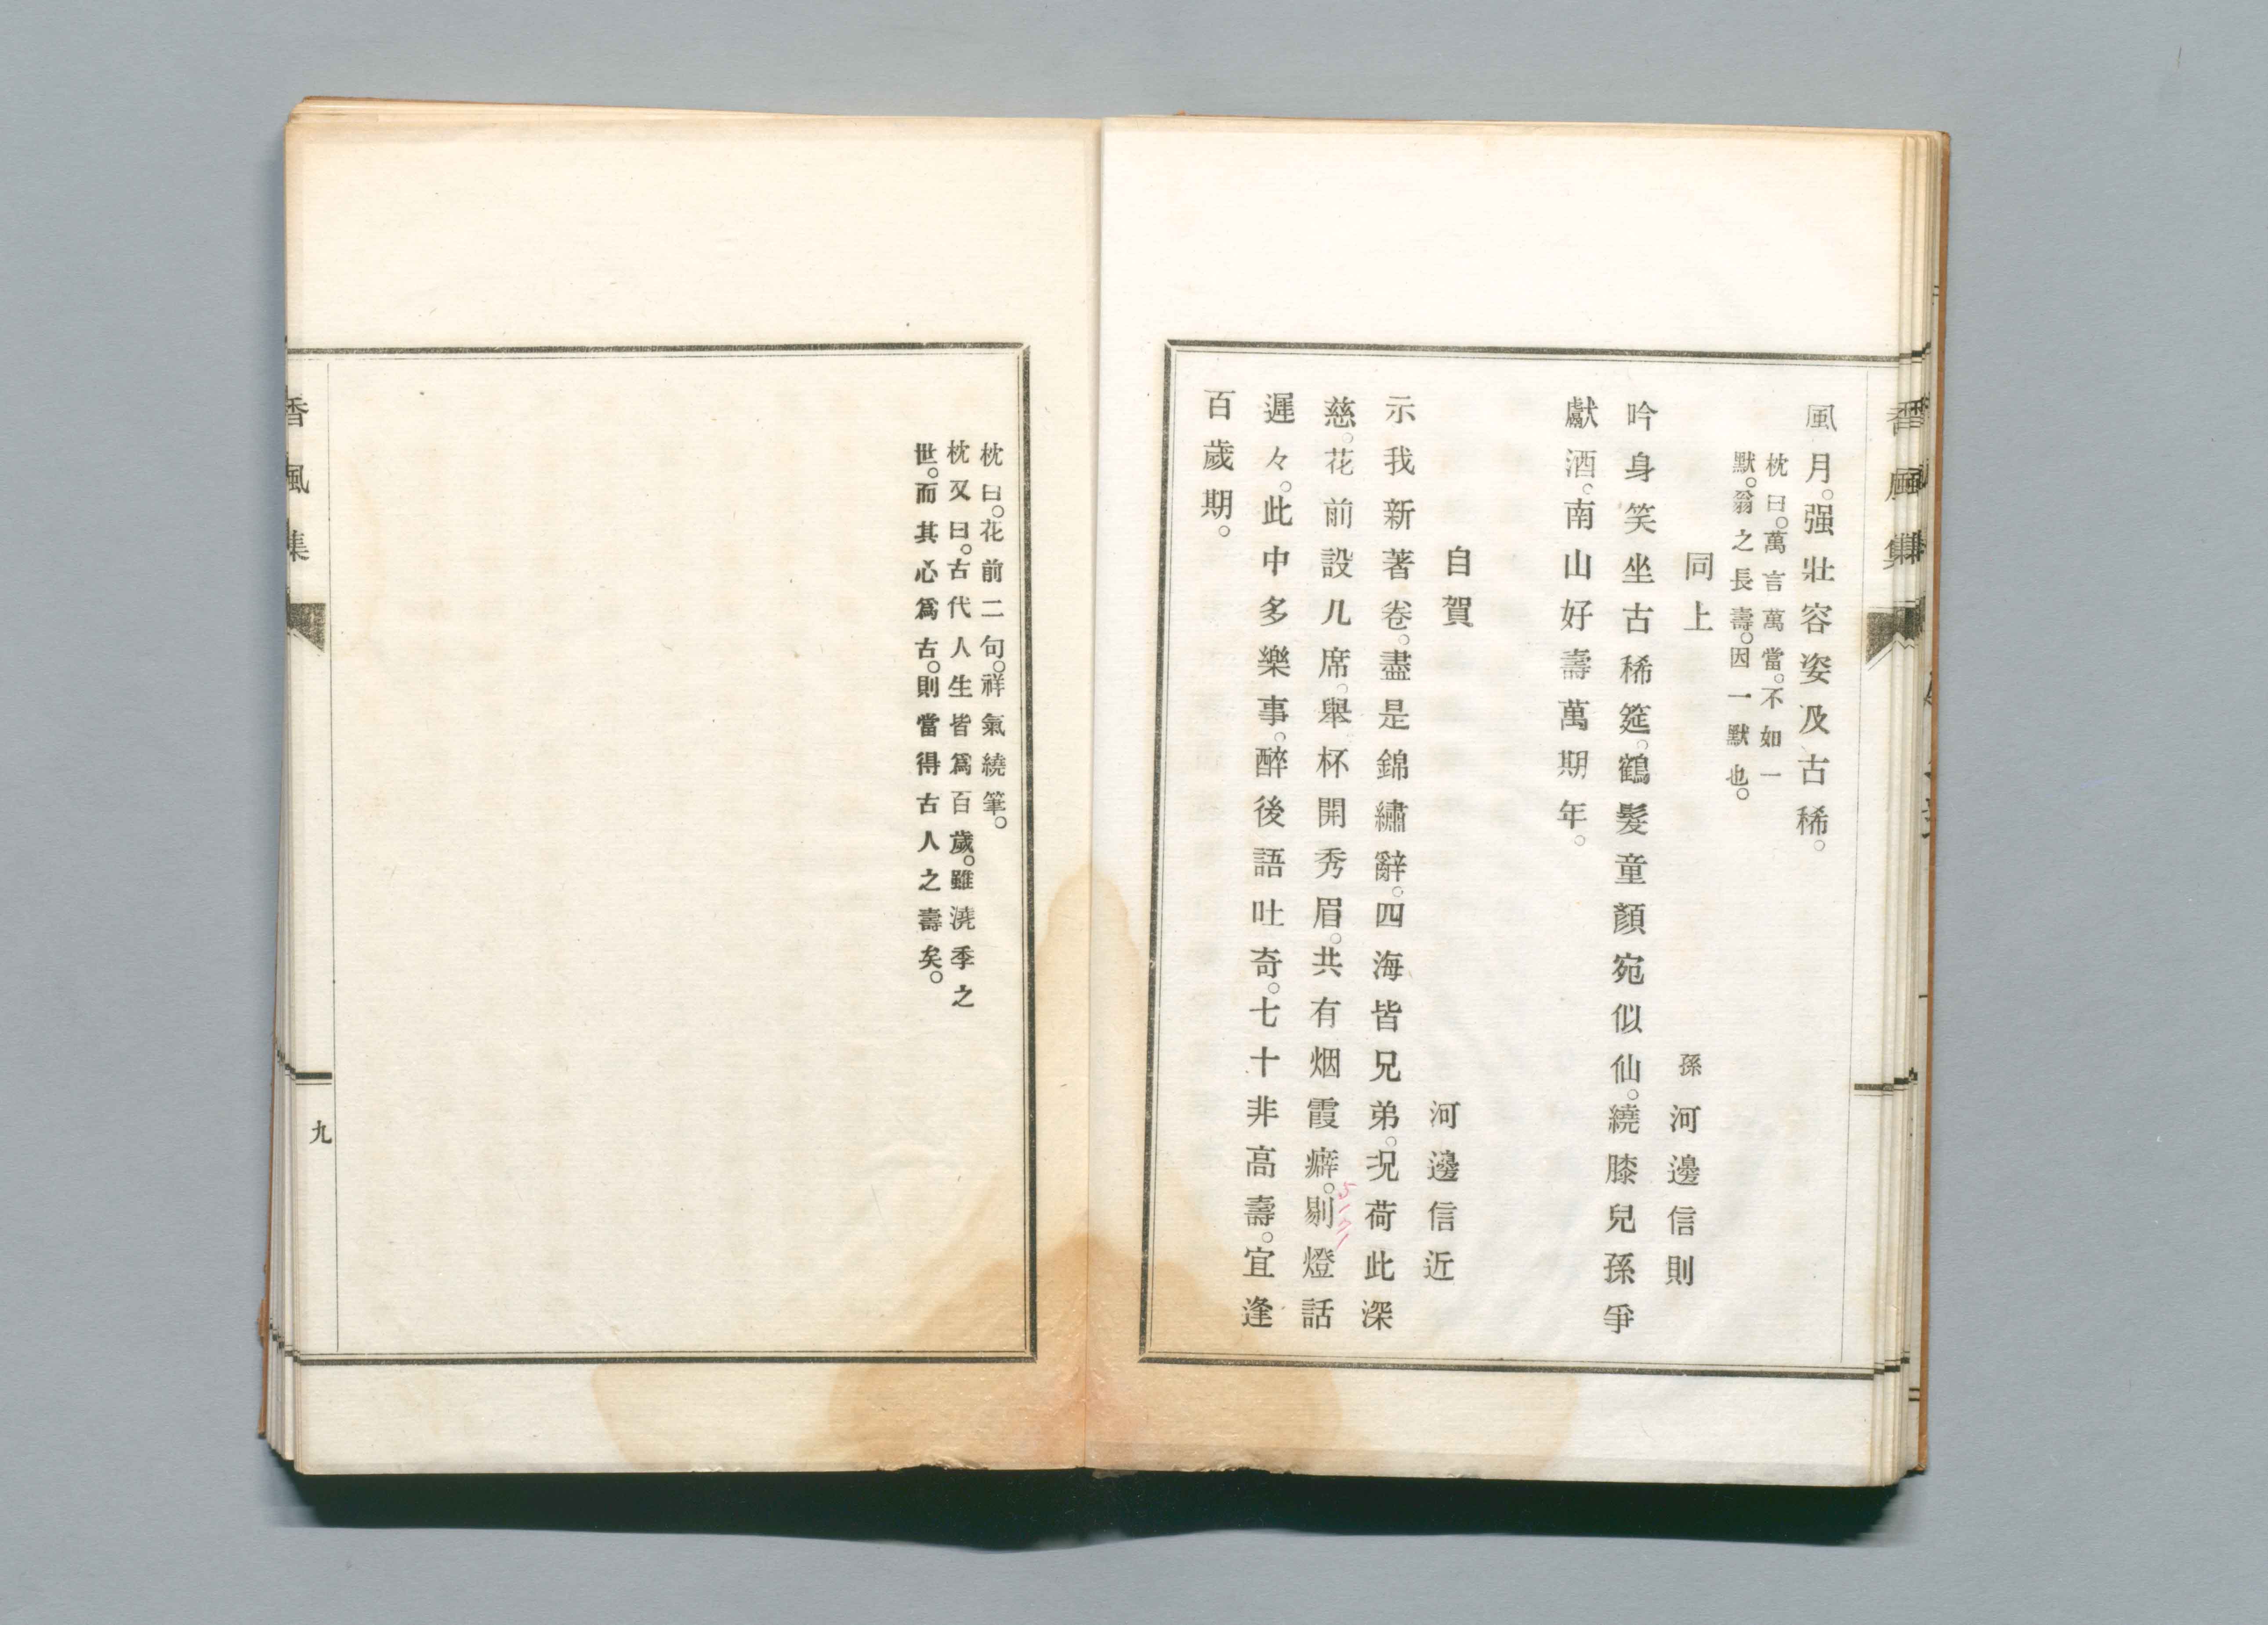 風月。强壯容姿及古稀。
枕曰。萬言萬當。不如一
默。翁之長壽。因一默也。
同上
孫 河邊信則
吟身笑坐古稀筵。鶴髮童顏宛似仙。繞膝兒孫爭
獻酒。南山好壽萬期年。
自賀
河邊信近
示我新著卷。盡是錦繡辭。四海皆兄弟。况荷此深
慈。花前設几席。舉杯開秀眉。共有烟霞癖。剔燈話
遲々。此中多樂事。醉後語吐奇。七十非高壽。宜逢
百歲期。
枕曰。花前二句。祥氣繞筆。
枕又曰。古代人生皆爲百歲。雖澆季之
世。而其心爲古。則當得古人之壽矣。
香風集
九